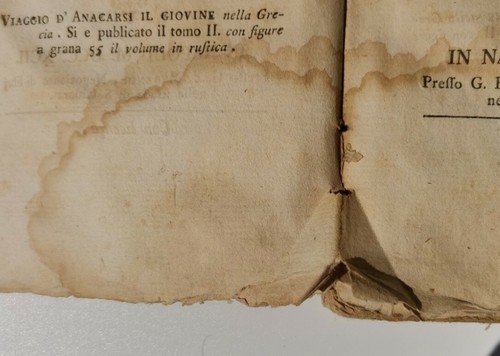 VIAGGIO D' ANACARSI IL GIOVINE nella Gre-
cia . Si e publicato il tomo II. con figure
a grana 55 il volume in rustica .
IN NA
Presso G.
ne